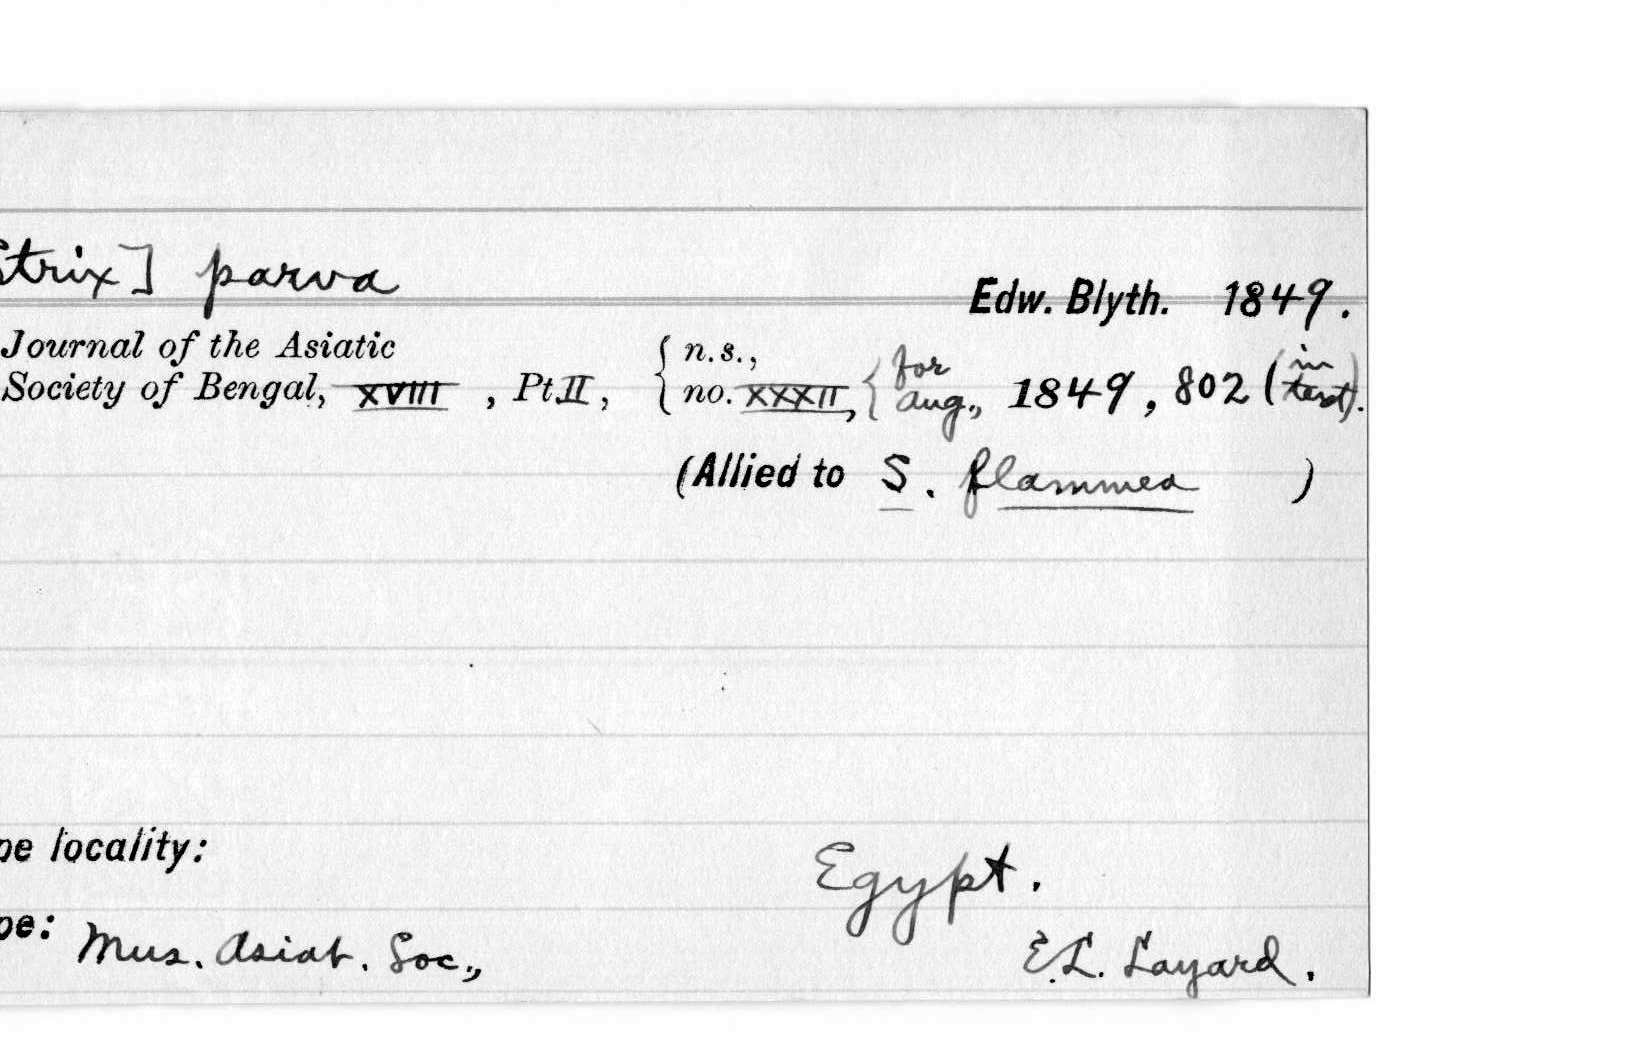 Strix] parva
Edw. Blyth. 1849.
Journal of the Asiatic
Society of Bengal, XVIII, Pt II, { n.s., no. XXXII, { for Aug., 1849, 802 (in text).
(Allied to S. flammea )
pe locality:
Egypt.
pe: Mus. Asiat. Soc.,
E.L. Layard.